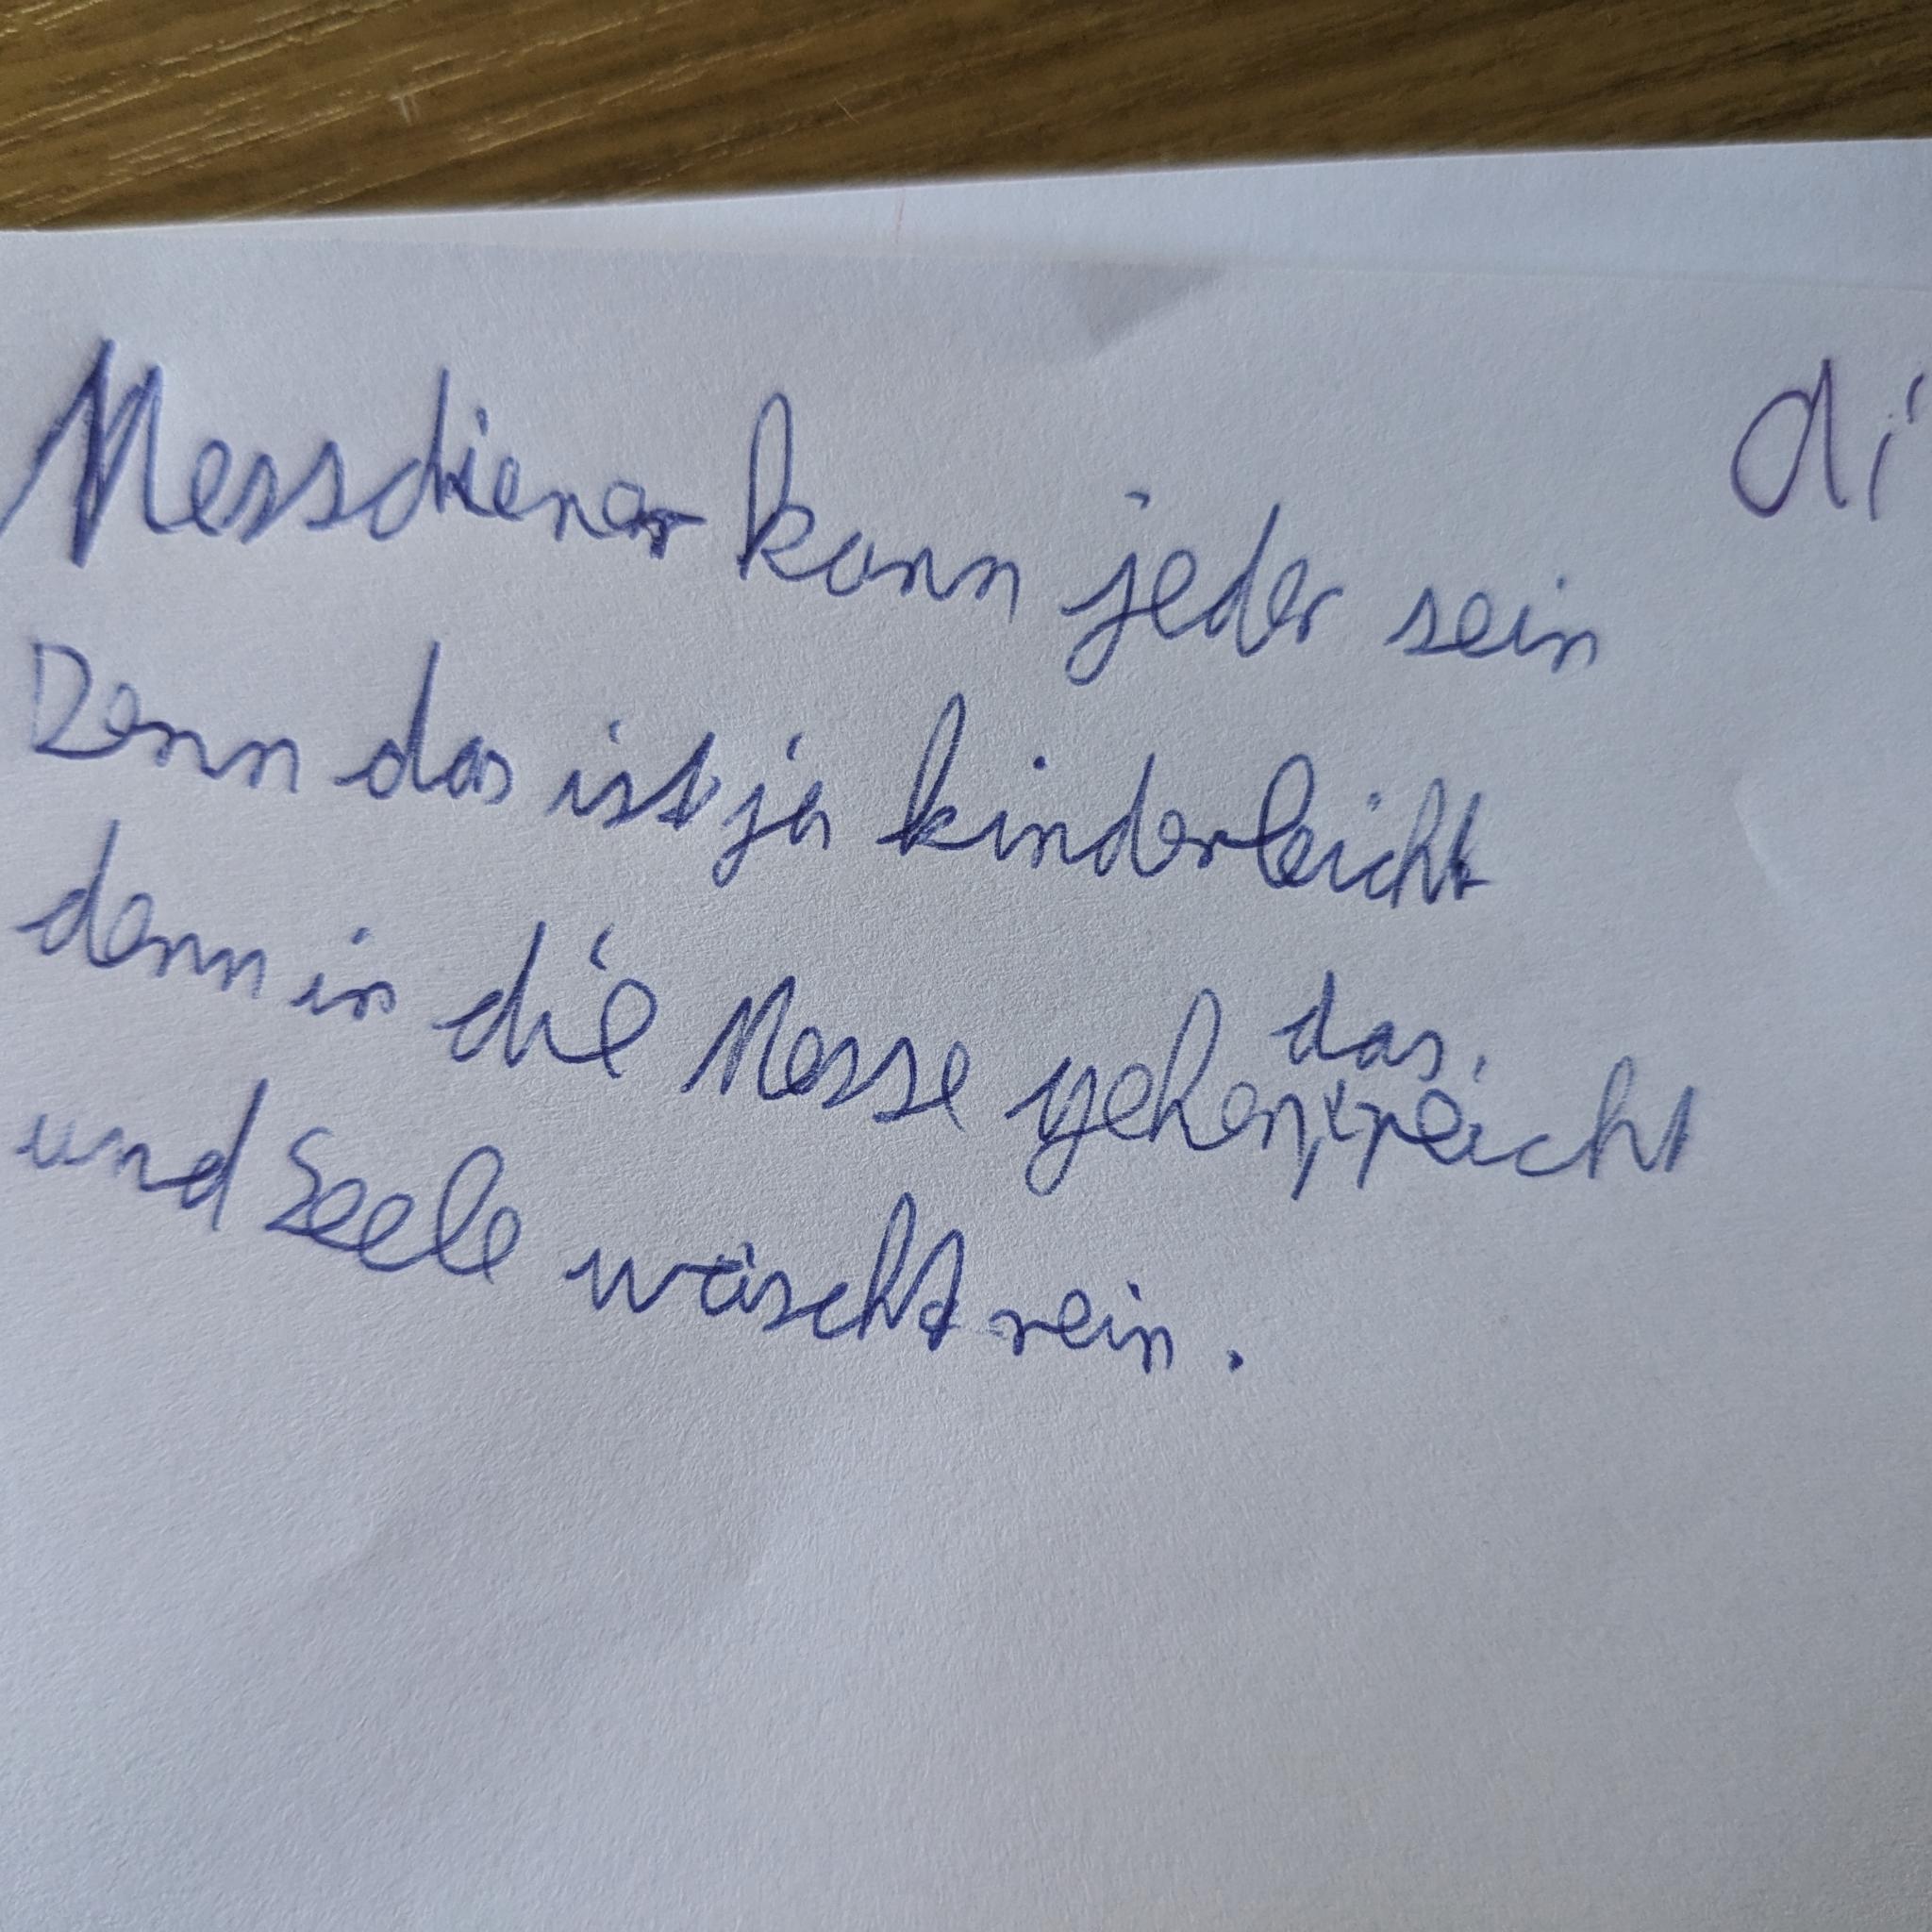 Messdiener kann jeder sein
Denn das ist ja kinderleicht
denn in die Messe gehen, das reicht
und Seele wäscht rein.
di